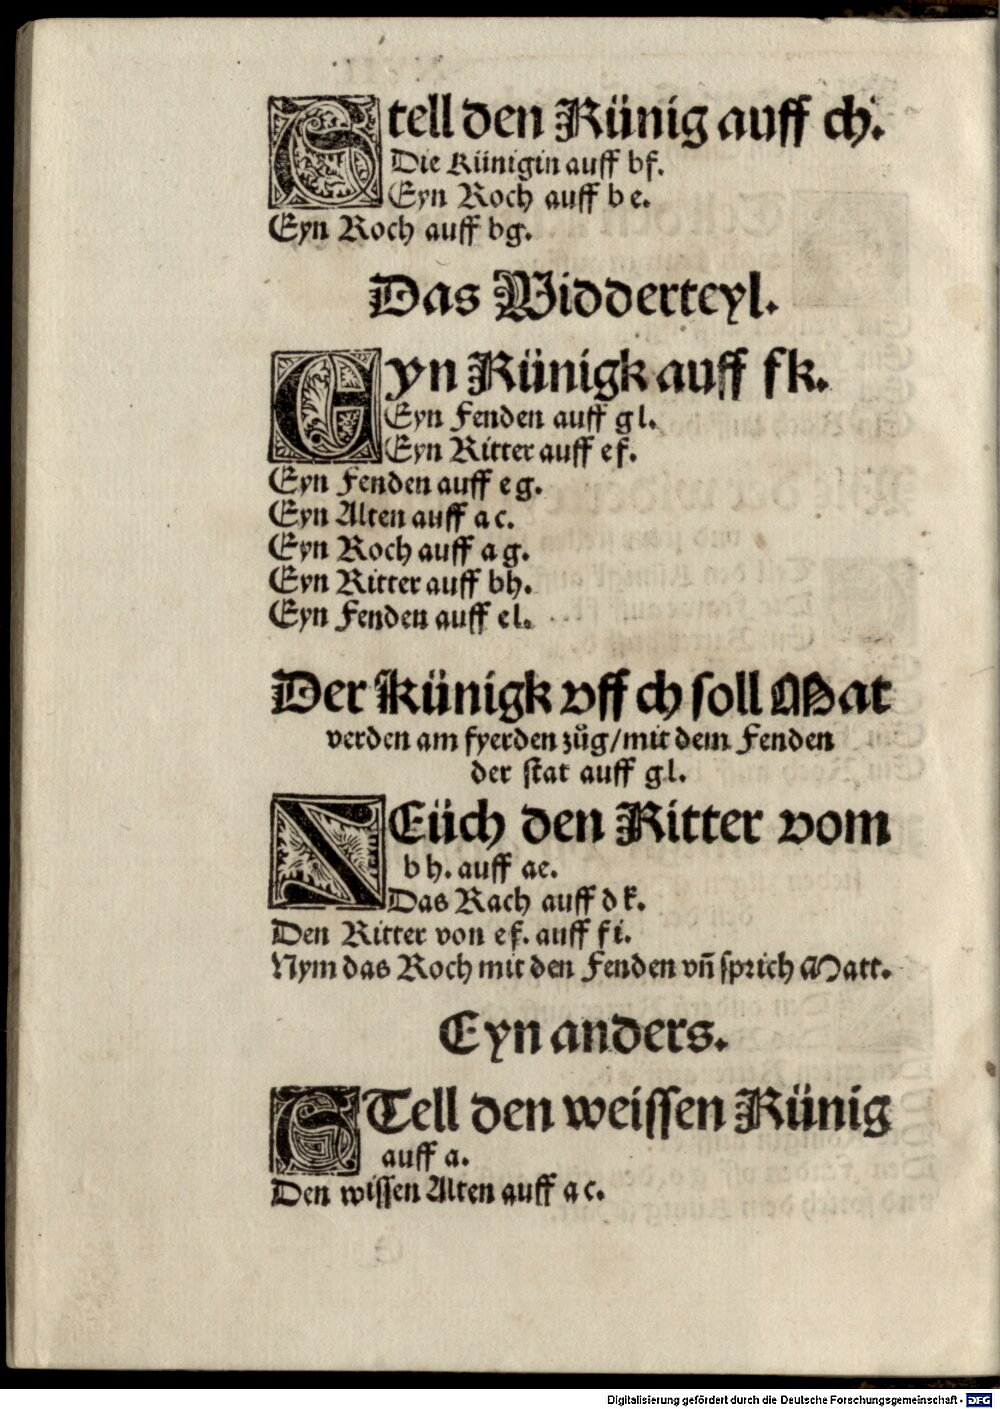 Stell den Künig auff ch.
Die Künigin auff bf.
Eyn Roch auff be.
Eyn Roch auff bg.
Das Widderteyl.
Eyn Künigk auff fk.
Eyn Fenden auff gl.
Eyn Ritter auff ef.
Eyn Fenden auff eg.
Eyn Alten auff ac.
Eyn Roch auff ag.
Eyn Ritter auff bh.
Eyn Fenden auff el.
Der Künigk vff ch soll Mat
verden am fyerden zůg/mit dem Fenden
der stat auff gl.
ZEüch den Ritter vom
bh. auff ae.
Das Rach auff dk.
Den Ritter von ef. auff fi.
Nym das Roch mit den Fenden vñ sprich Matt.
Eyn anders.
STell den weissen Künig
auff a.
Den wissen Alten auff ac.
Digitalisierung gefördert durch die Deutsche Forschungsgemeinschaft - DFG